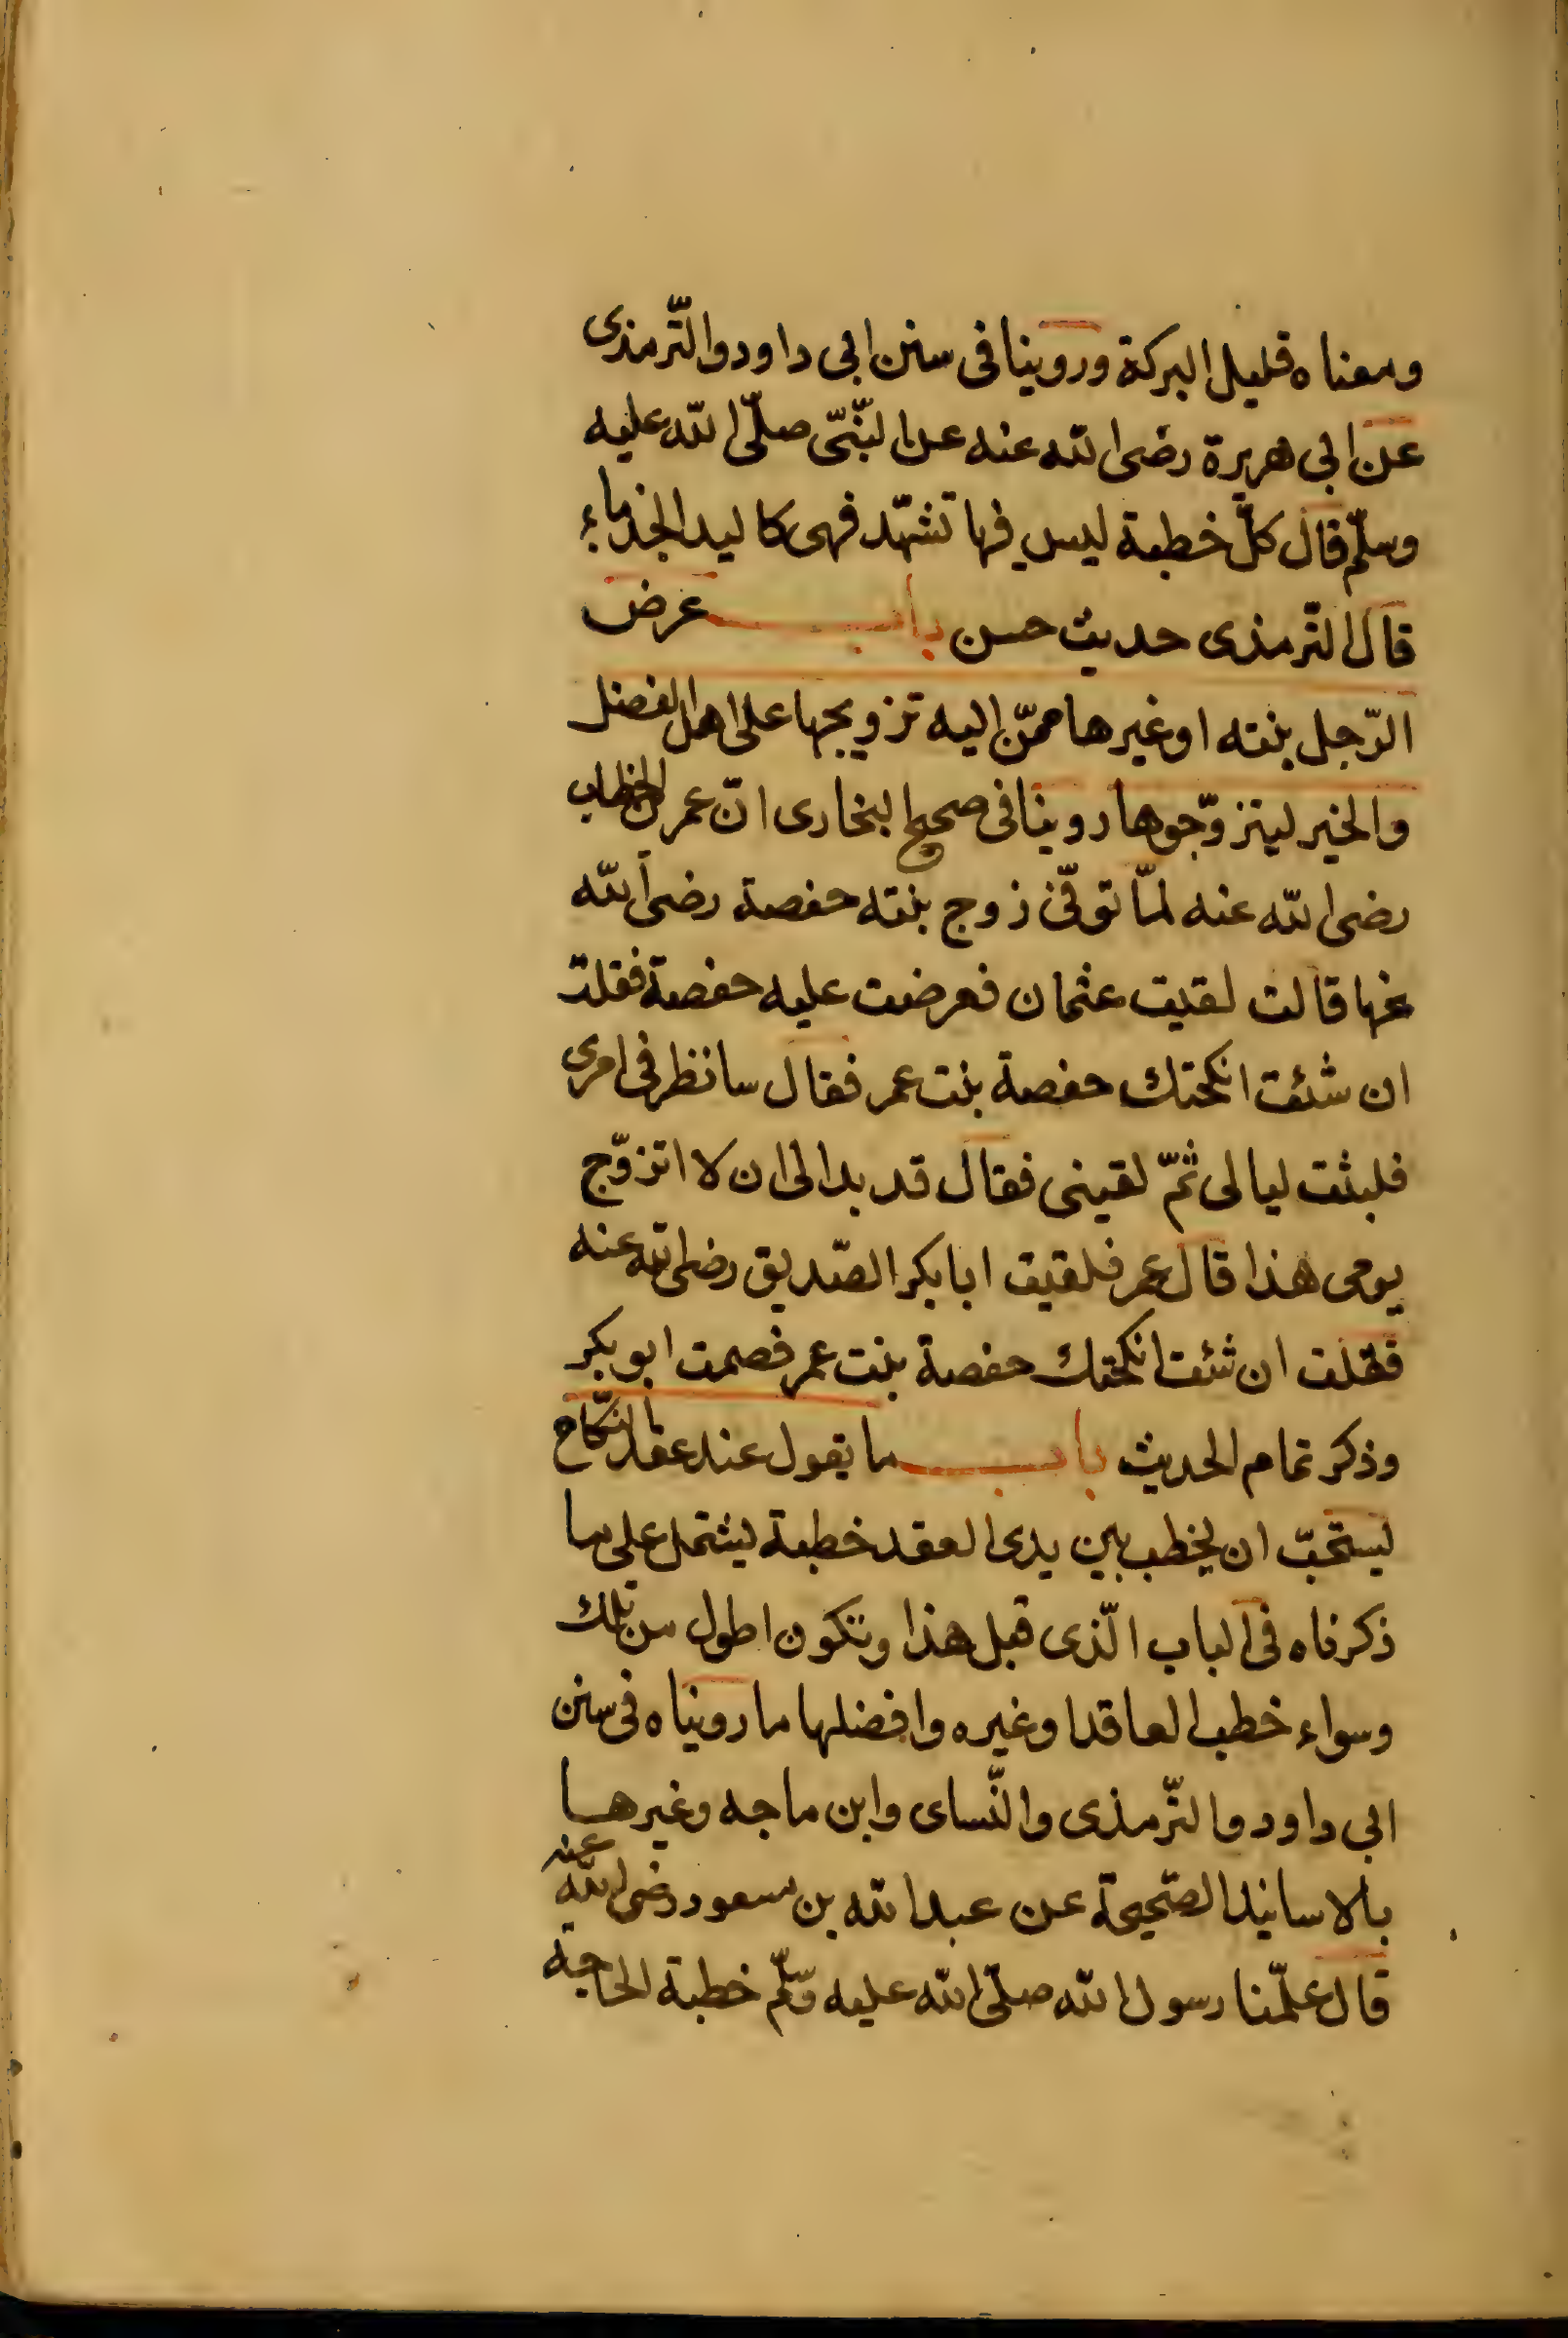 ومعناه قليل البركة وروينا في سنن ابي داود والتّرمذي
عن ابي هريرة رضى الله عنه عن النّبىّ صلّى الله عليه
وسلّم قال كلّ خطبة ليس فيها تشهّد فهى كاليد الجذماء
قال التّرمذى حديث حسن باب عرض
الرّجل بنته او غيرها ممّن اليه تزويجها على اهل الفضل
والخير ليتزوّجوها روينا فى صحيح البخارى انّ عمر بن الخطاب
رضى الله عنه لمّا توفّى زوج بنته حفصة رضى الله
عنها قالت لقيت عثمان فعرضت عليه حفصة فقلت
ان شئت انكحتك حفصة بنت عمر فقال سانظر فى امرى
فلبثت ليالى ثمّ لقينى فقال قد بدا لى ان لا اتزوّج
يومى هذا قال عمر فلقيت ابا بكر الصّديق رضى الله عنه
فقلت ان شئت انكحتك حفصة بنت عمر فصمت ابو بكر
وذكر تمام الحديث باب ما يقول عند عقد النّكاح
يستحبّ ان يخطب بين يدى العقد خطبة يشتمل على ما
ذكرناه فى الباب الّذى قبل هذا وتكون اطول من تلك
وسواء خطب العاقد او غيره وافضلها ما رويناه فى سنن
ابى داود والتّرمذى والنّساى وابن ماجه وغيرها
بالاسانيد الصّحيحة عن عبد الله بن مسعود رضى الله عنه
قال علّمنا رسول الله صلّى الله عليه وسّلّم خطبة الحاجة